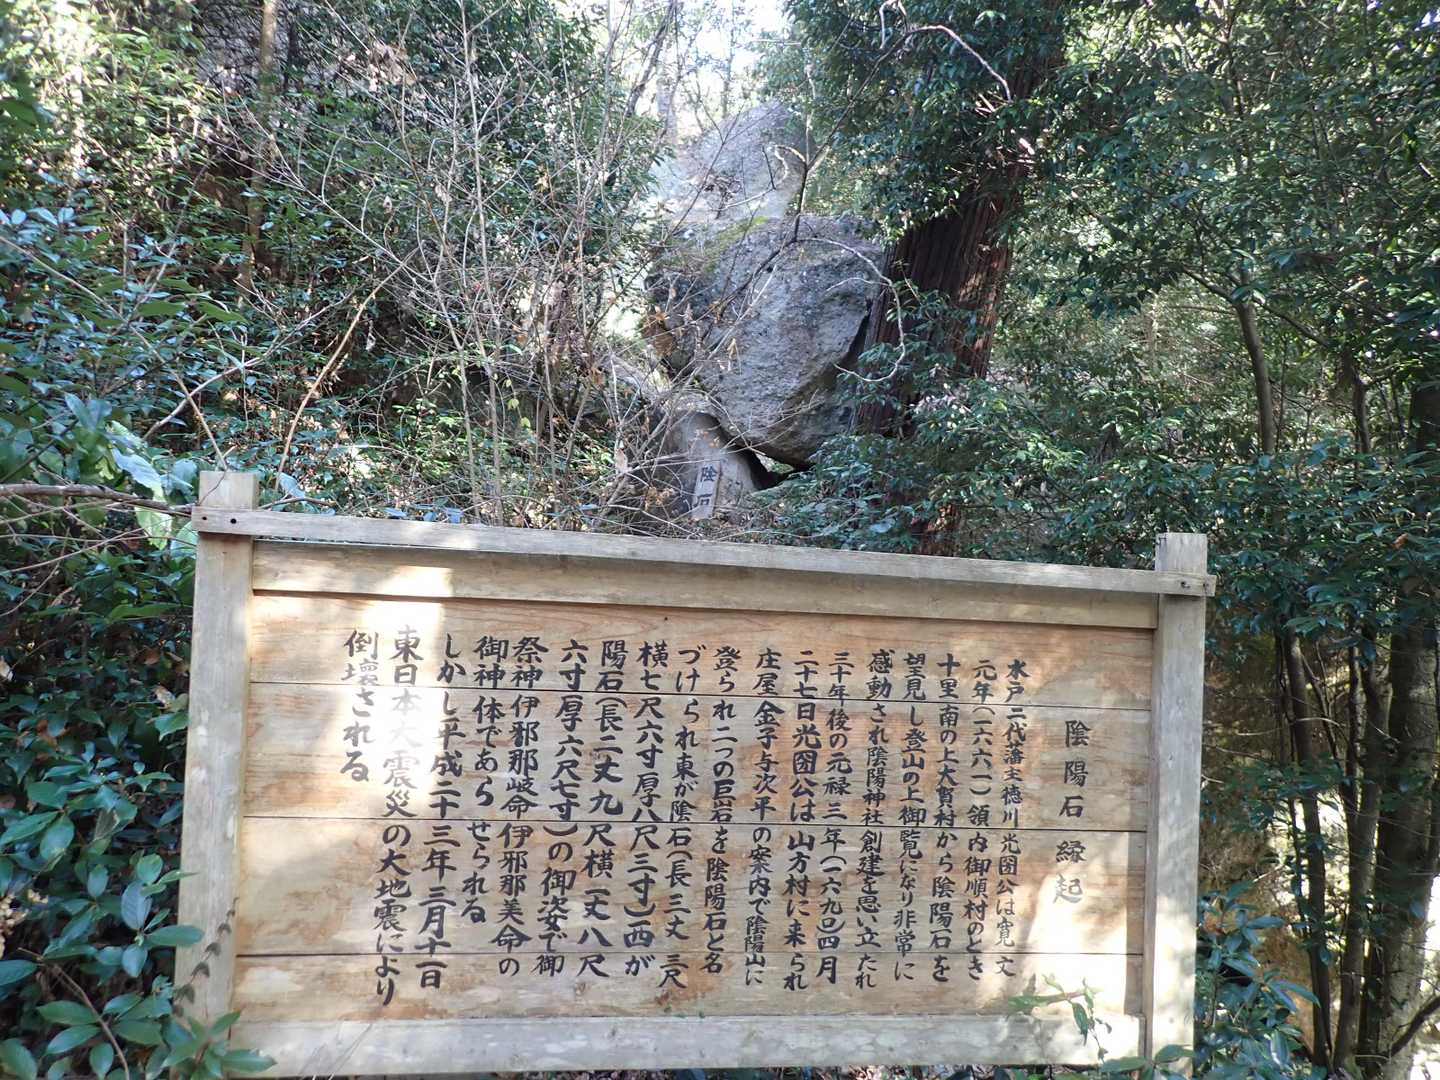 陰陽石縁起
水戸二代藩主徳川光圀公は寛文
元年(一六六一)領内御順村のとき
十里南の上大賀村から陰陽石を
望見し登山の上御覧になり非常に
感動され陰陽神社創建を思い立たれ
三十年後の元禄三年(一六九〇)四月
二十七日光圀公は山方村に来られ
庄屋金子与次平の案内で陰陽山に
登られ二つの巨岩を陰陽石と名
づけられ東が陰石(長三丈三尺
横七尺六寸厚八尺三寸)西が
陽石(長二丈九尺横一丈八尺
六寸厚六尺七寸)の御姿で御
祭神伊邪那岐命伊邪那美命の
御神体であらせられる
しかし平成二十三年三月十一日
東日本大震災の大地震により
倒壊される
陰石